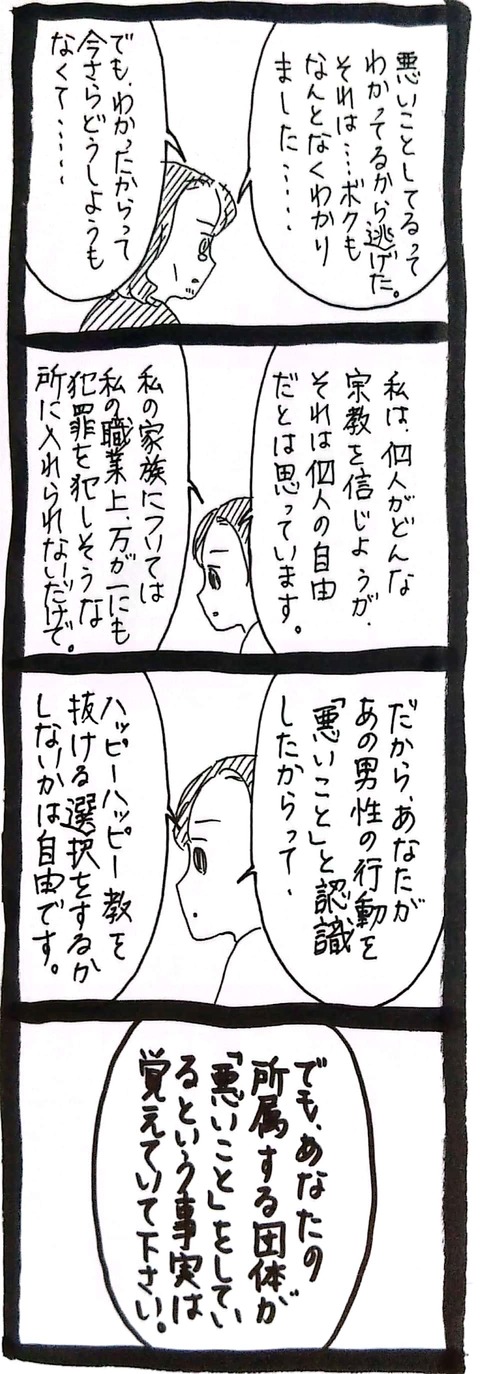 悪いことしてるって
わかってるから逃げた。
それは…ボクも
なんとなくわかり
ました‥‥
でも、わかったからって
今さらどうしようも
なくて‥‥‥
私は、個人がどんな
宗教を信じようが、
それは個人の自由
だとは思っています。
私の家族については
私の職業上、万が一にも
犯罪を犯しそうな
所に入れられないだけで。
だから、あなたが
あの男性の行動を
「悪いこと」と認識
したからって、
ハッピーハッピー教を
抜ける選択をするか
しないかは自由です。
でも、あなたの
所属する団体が
「悪いこと」をしてい
るという事実は
覚えていて下さい。